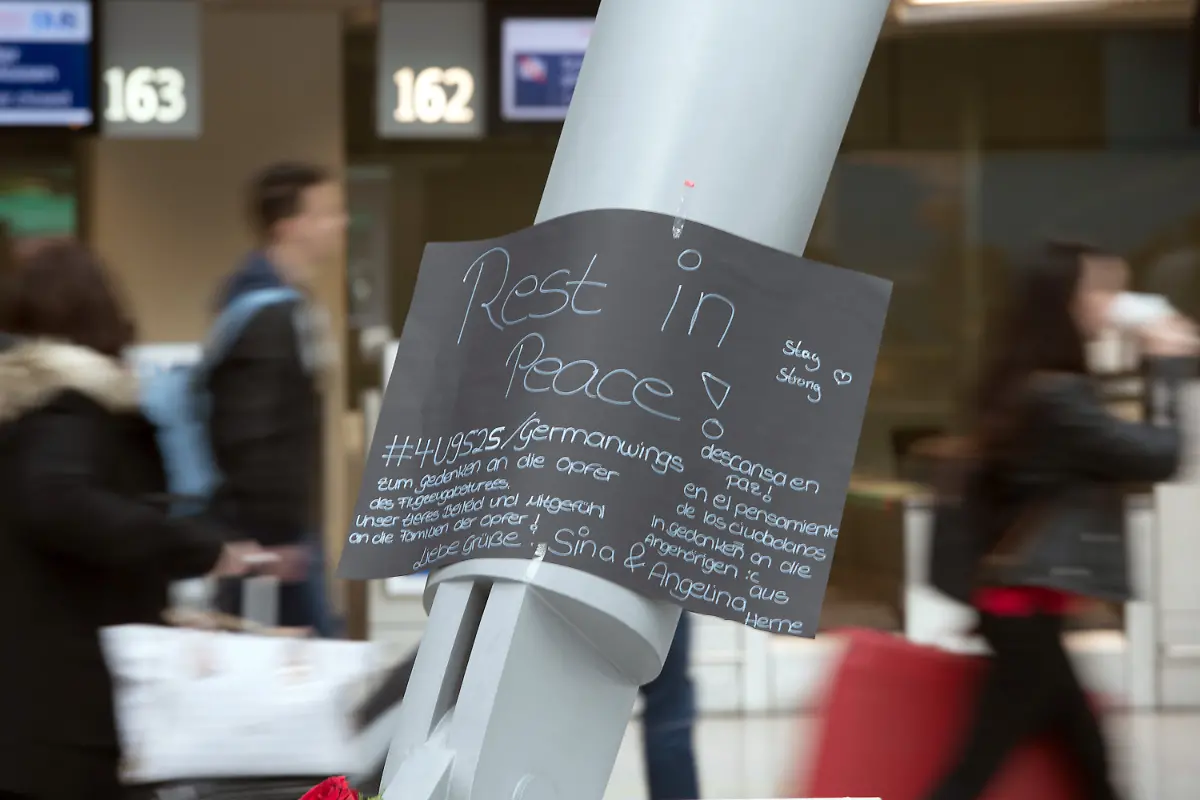 163
162
Rest in
Peace!
Stay
Strong ♡
#4U9525/Germanwings
zum gedenken an die opfer
des Flugzeugabsturzes.
Unser tiefes Beileid und Mitgefühl
an die Familien der opfer!
Liebe Grüße: Sina & Angelina aus Herne
descansa en
paz!
en el pensamiento
de los ciudadanos
In gedanken an die
Angehörigen :c